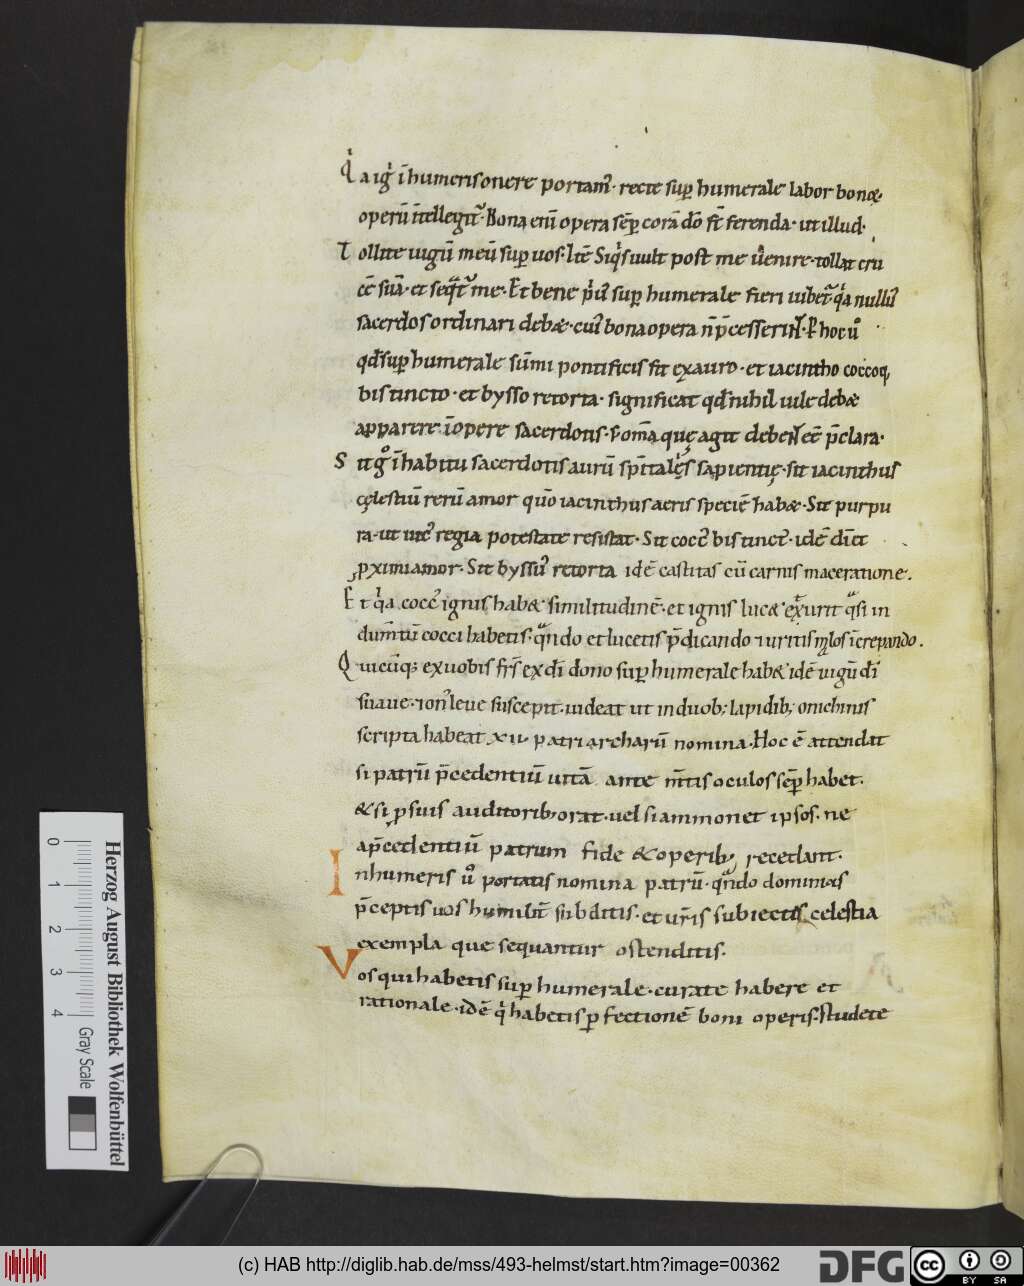 Q̇ a iǵ ī humeris onere portam᾽· recte sup̲ humerale labor bonoꝝ
operū ītellegit᾽· Bona enī opera sēp corā dō sīt ferenda· ut illud·
T ollite iugū meū sup̲ uos· Itē Siq̇s uult post me uenire· tollat cru
cē suā· et seq̄t᾽ me· Et bene p̄us sup̲ humerale fieri iubet᾽· q̇a nullus
sacerdos ordinari debæ· cui᾽ bona opera n̄ p̄cesserint·
qđ sup̲ humerale sūmi pontificis fit ex auro· et iacintho cocco q,
bis tincto· et bysso retorta· significat qđ nihil uile debæ
apparere ī opere sacerdotis· s; om̄a quę agit debent eē p̄clara·
S it gº ī habitu sacerdotis aurū sp̄italęs sapientię· sit iacinthus
cęlestiū rerū amor quo iacinthus aeris speciē habæ· Sit purpu
ra· ut uice regia potestate resistat· Sit cocc᾽ bis tinct᾽· idē dīct
p̲ximi amor· Sit byssus retorta idē castitas cū carnis maceratione.
E t q̇a cocc᾽ ignis habæ similitudinē· et ignis lucæ exurit q̄si in
dumtū cocci habetis· q̄ndo et lucetis p̄dicando ⁊ uritis malos īcrepando.
Q uicūq; ex uobis fr̄s ex di dono sup̲ humerale habæ idē iugū di
suaue· ⁊ on᾽ leue suscepit· uideat ut in duob; lapidib; onichinis
scripta habeat xii· patriarcharū nomina· Hoc ē attendat
si patrū p̄cedentiū uitā ante mtis oculos sēp habet·
& si p̲ suis auditorib; orat· uel si ammonet ipsos· ne
a p̄cedentiū patrum fide & operib; recedant·
I n humeris uº portatis nomina patrū· q̄ndo dominicis
p̄ceptis uos humilit᾽ subditis· et ur̄is subiectis celestia
exempla que sequantur ostenditis·
V os qui habetis sup̲ humerale· curate habere et
rationale· idē q̇ habetis p̲fectionē boni operis· studete
0 1 2 3 4
Herzog August Bibliothek Wolfenbüttel
Gray Scale
(c) HAB http://diglib.hab.de/mss/493-helmst/start.htm?image=00362
DFG
cc BY SA